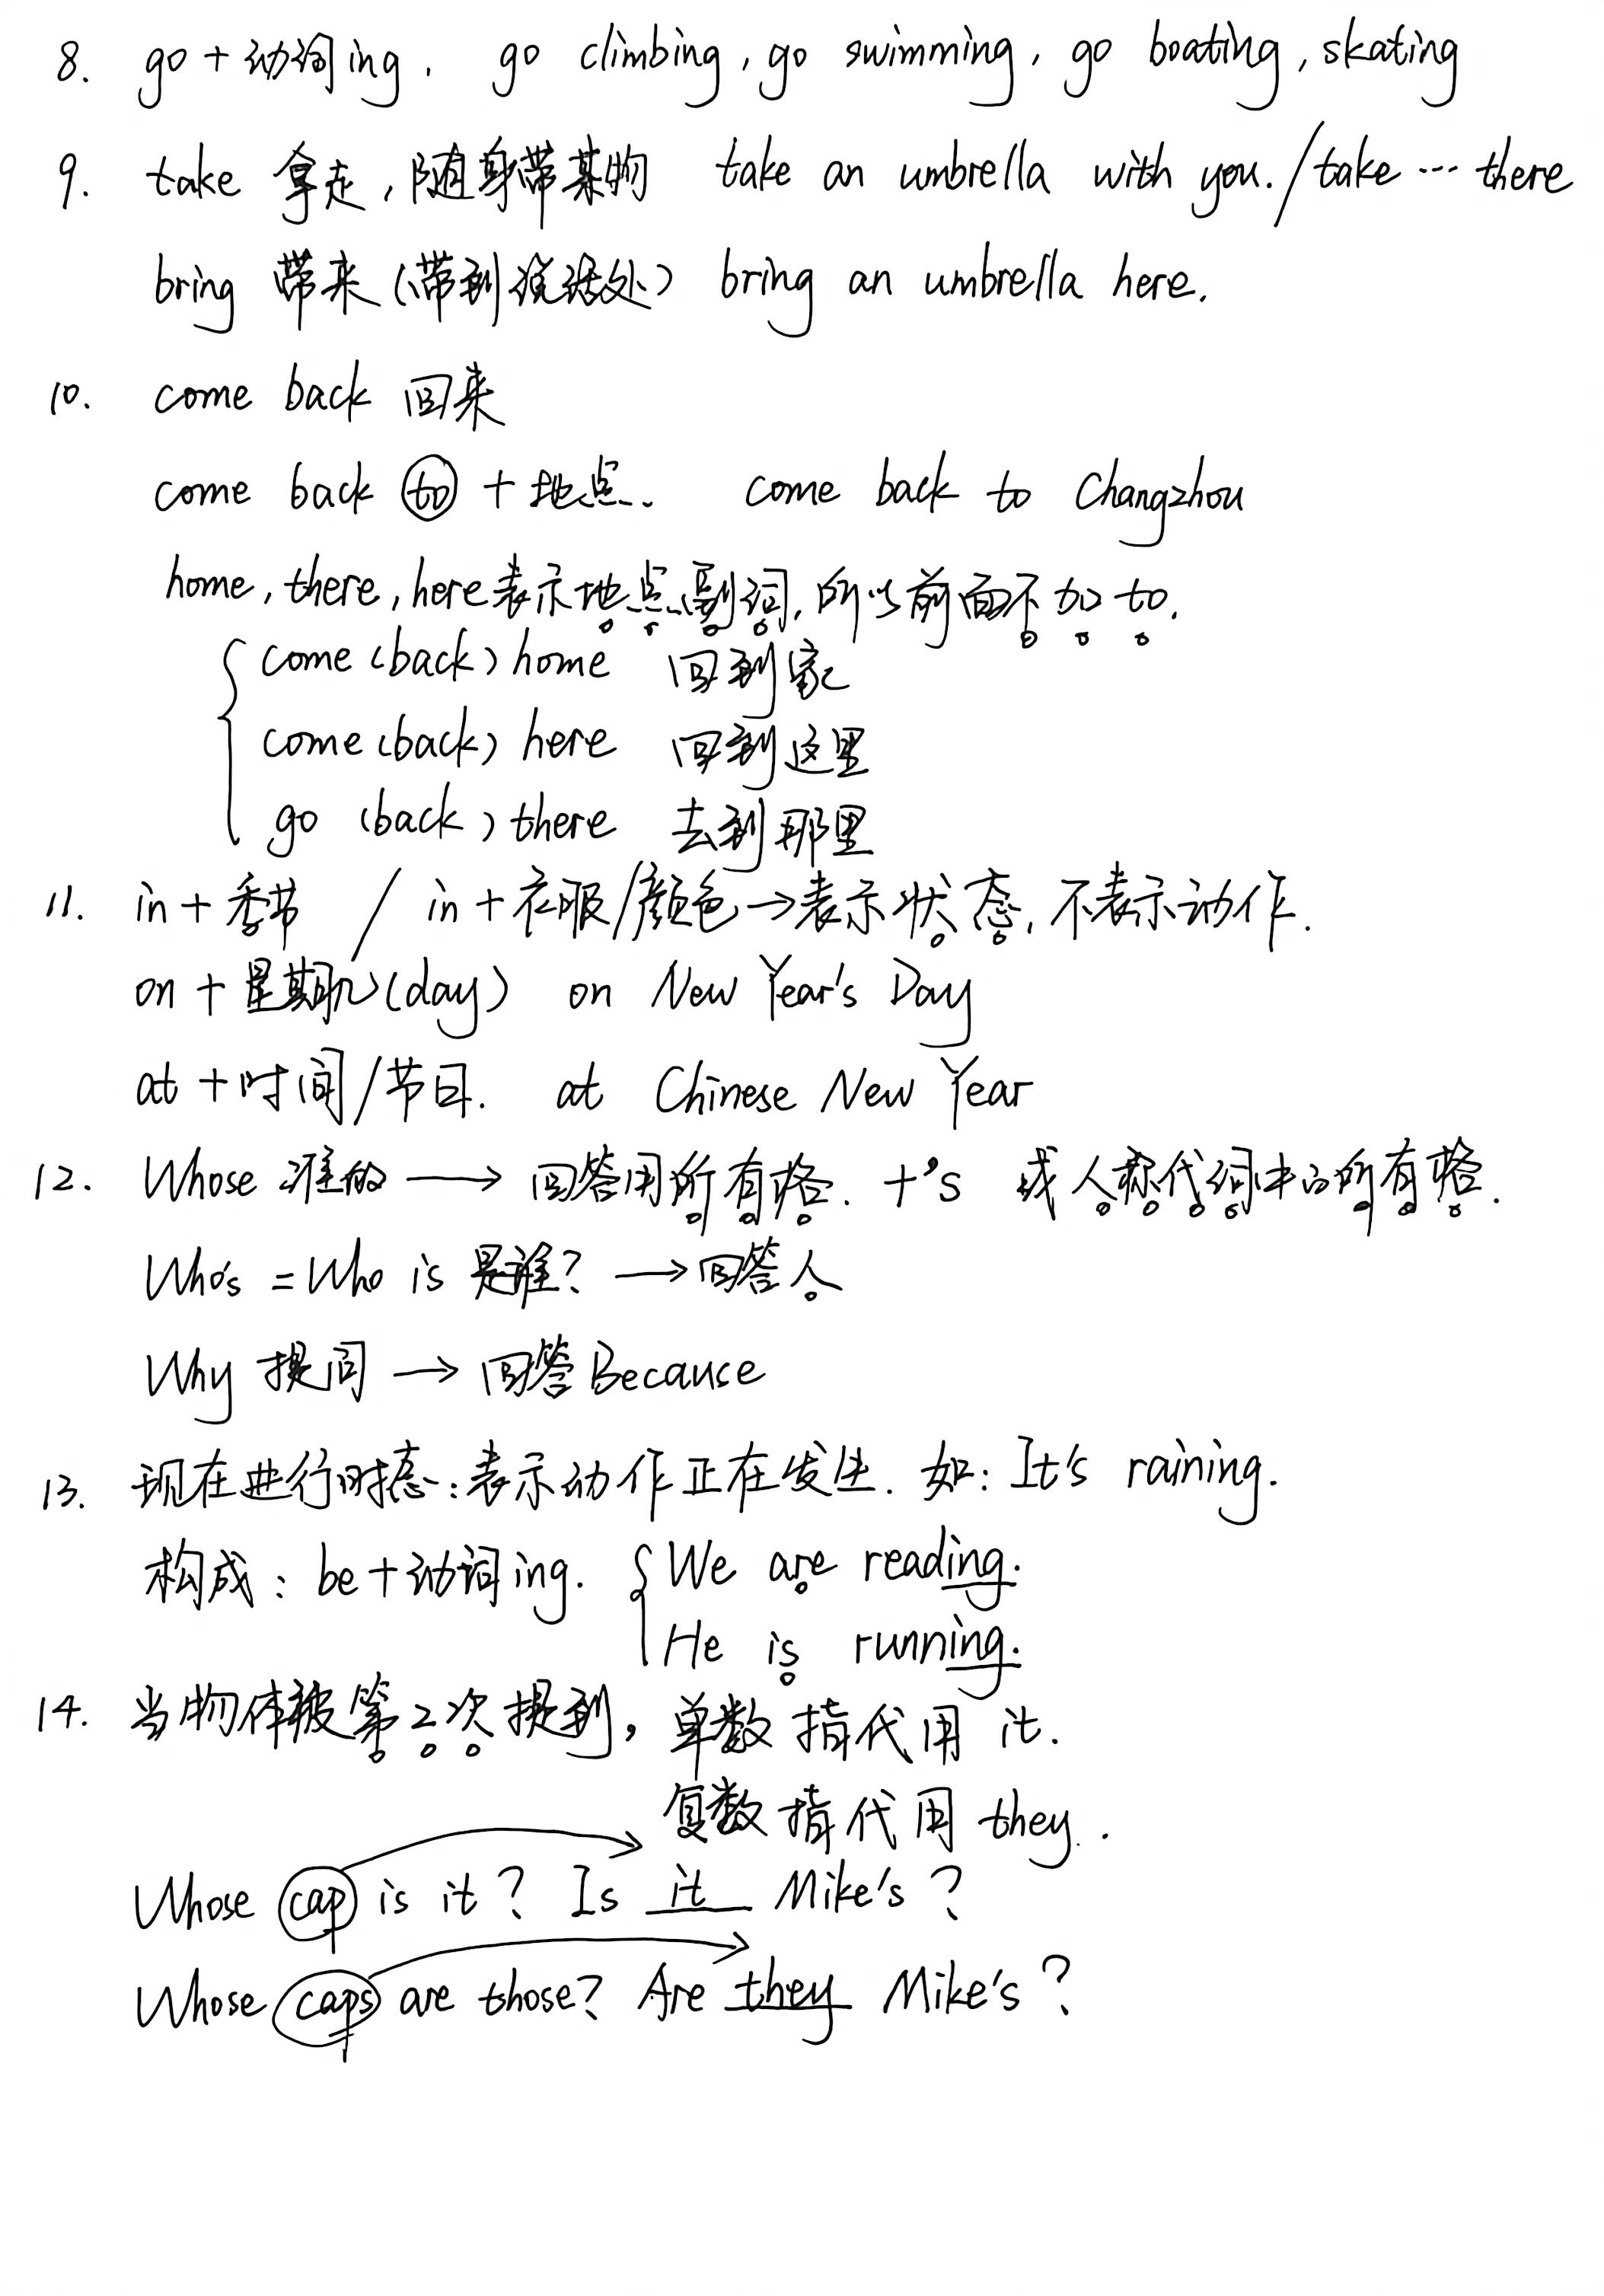 8. go + 动词ing. go climbing, go swimming, go boating, skating
9. take 拿走,随身带某物 take an umbrella with you. / take … there
bring 带来(带到说话处) bring an umbrella here.
10. come back 回来
come back to + 地点. come back to Changzhou
home, there, here表示地点副词,所以前面不加to.
come (back) home 回到家
come (back) here 回到这里
go (back) there 去到那里
11. in + 季节 / in + 衣服/颜色→表示状态,不表示动作.
on + 星期几(day) on New Year's Day
at + 时间/节日. at Chinese New Year
12. Whose 谁的 → 回答用所有格. +'s 或人称代词中的所有格.
Who's = Who is 是谁? → 回答人
Why 提问 → 回答Because
13. 现在进行时态:表示动作正在发生. 如: It's raining.
构成: be + 动词ing. We are reading.
He is running.
14. 当物体被第2次提到, 单数指代用 it.
复数指代用 they.
Whose cap is it? Is it Mike's?
Whose caps are those? Are they Mike's?